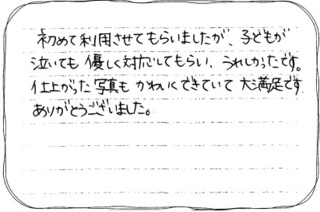 初めて利用させてもらいましたが、子どもが
泣いても優しく対応してもらい、うれしかったです。
仕上がった写真もかわいくできていて大満足です
ありがとうございました。